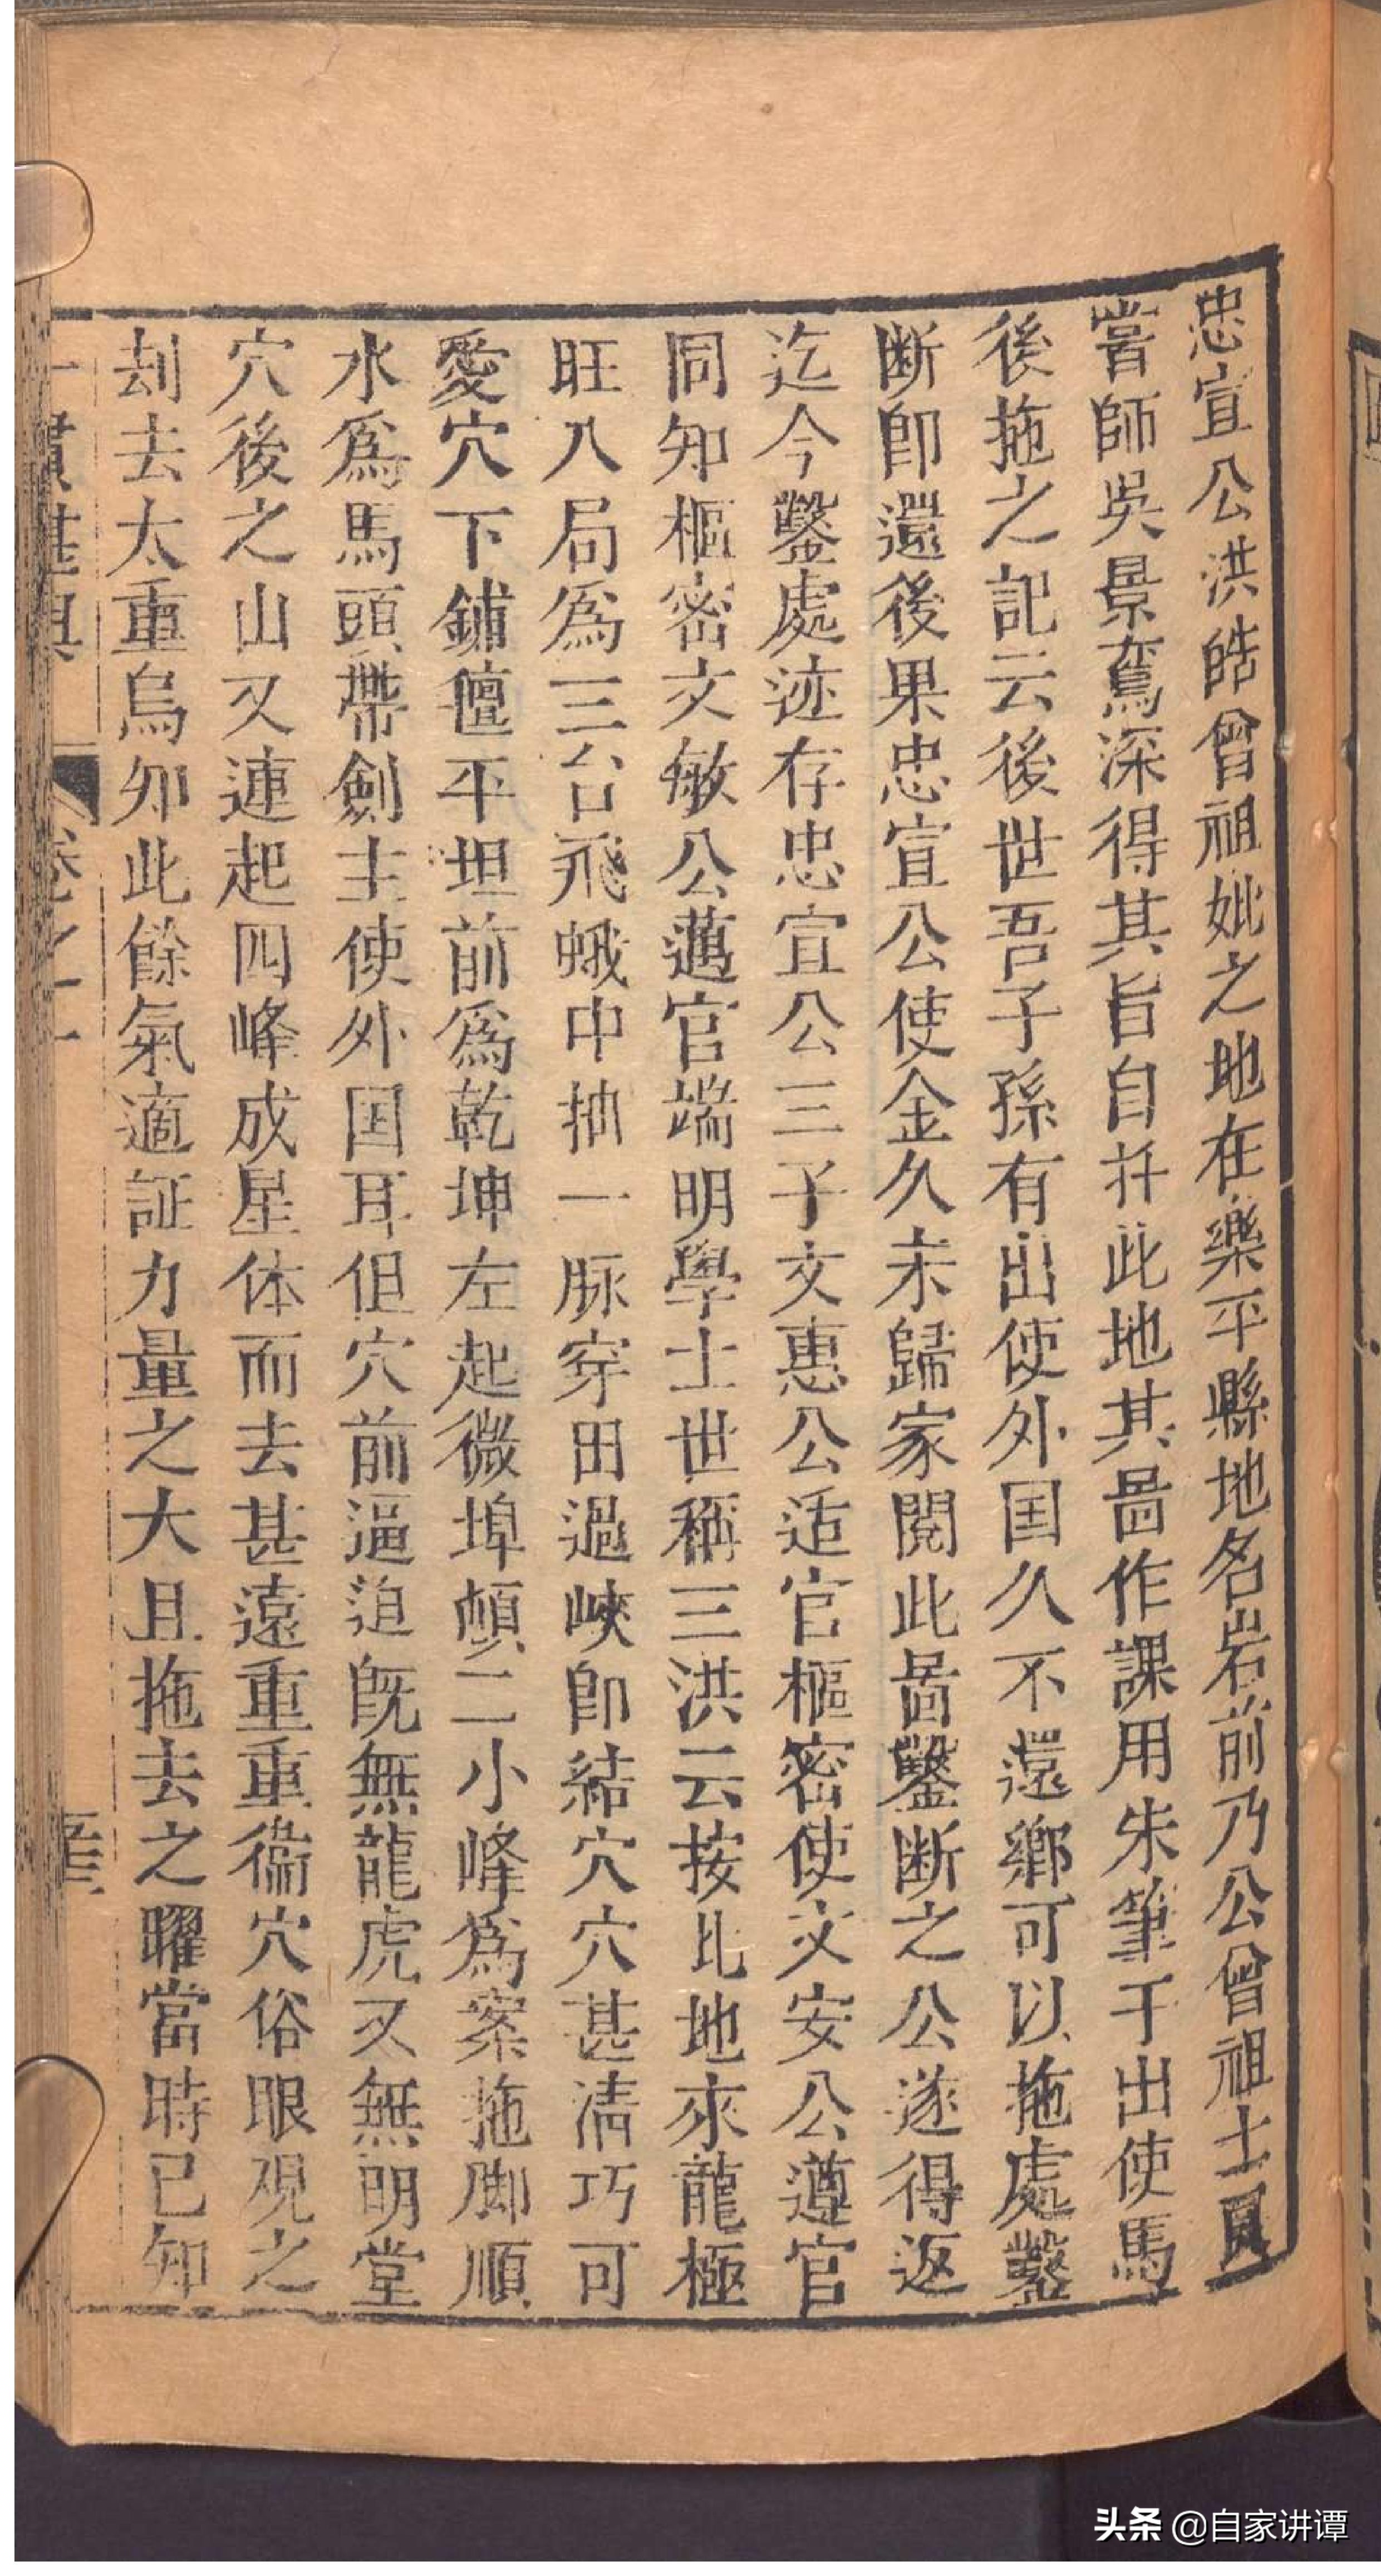 忠宣公洪皓曾祖妣之地在樂平縣地名岩前乃公曾祖士員
嘗師吳景鸞深得其旨自扦此地其啚作課用朱筆于出使馬
後拖之記云後世吾子孫有出使外国久不還鄉可以拖處鑿
断即還後果忠宣公使金久未歸家閱此啚鑿断之公遂得返
迄今鑿處迹存忠宣公三子文惠公适官樞密使文安公遵官
同知樞密文敏公邁官端明學士世稱三洪云按此地來龍極
旺入局為三台飛蛾中抽一脉穿田過峽即結穴穴甚清巧可
愛穴下鋪氊平坦前為乾坤左起微埠頓二小峰為案拖脚順
水為馬頭帶劍主使外国耳但穴前逼迫既無龍虎又無明堂
穴後之山又連起四峰成星体而去甚遠重重衞穴俗眼覌之
刦去太重烏知此餘氣適証力量之大且拖去之曜當時已知
卷之一
头条 @自家讲谭